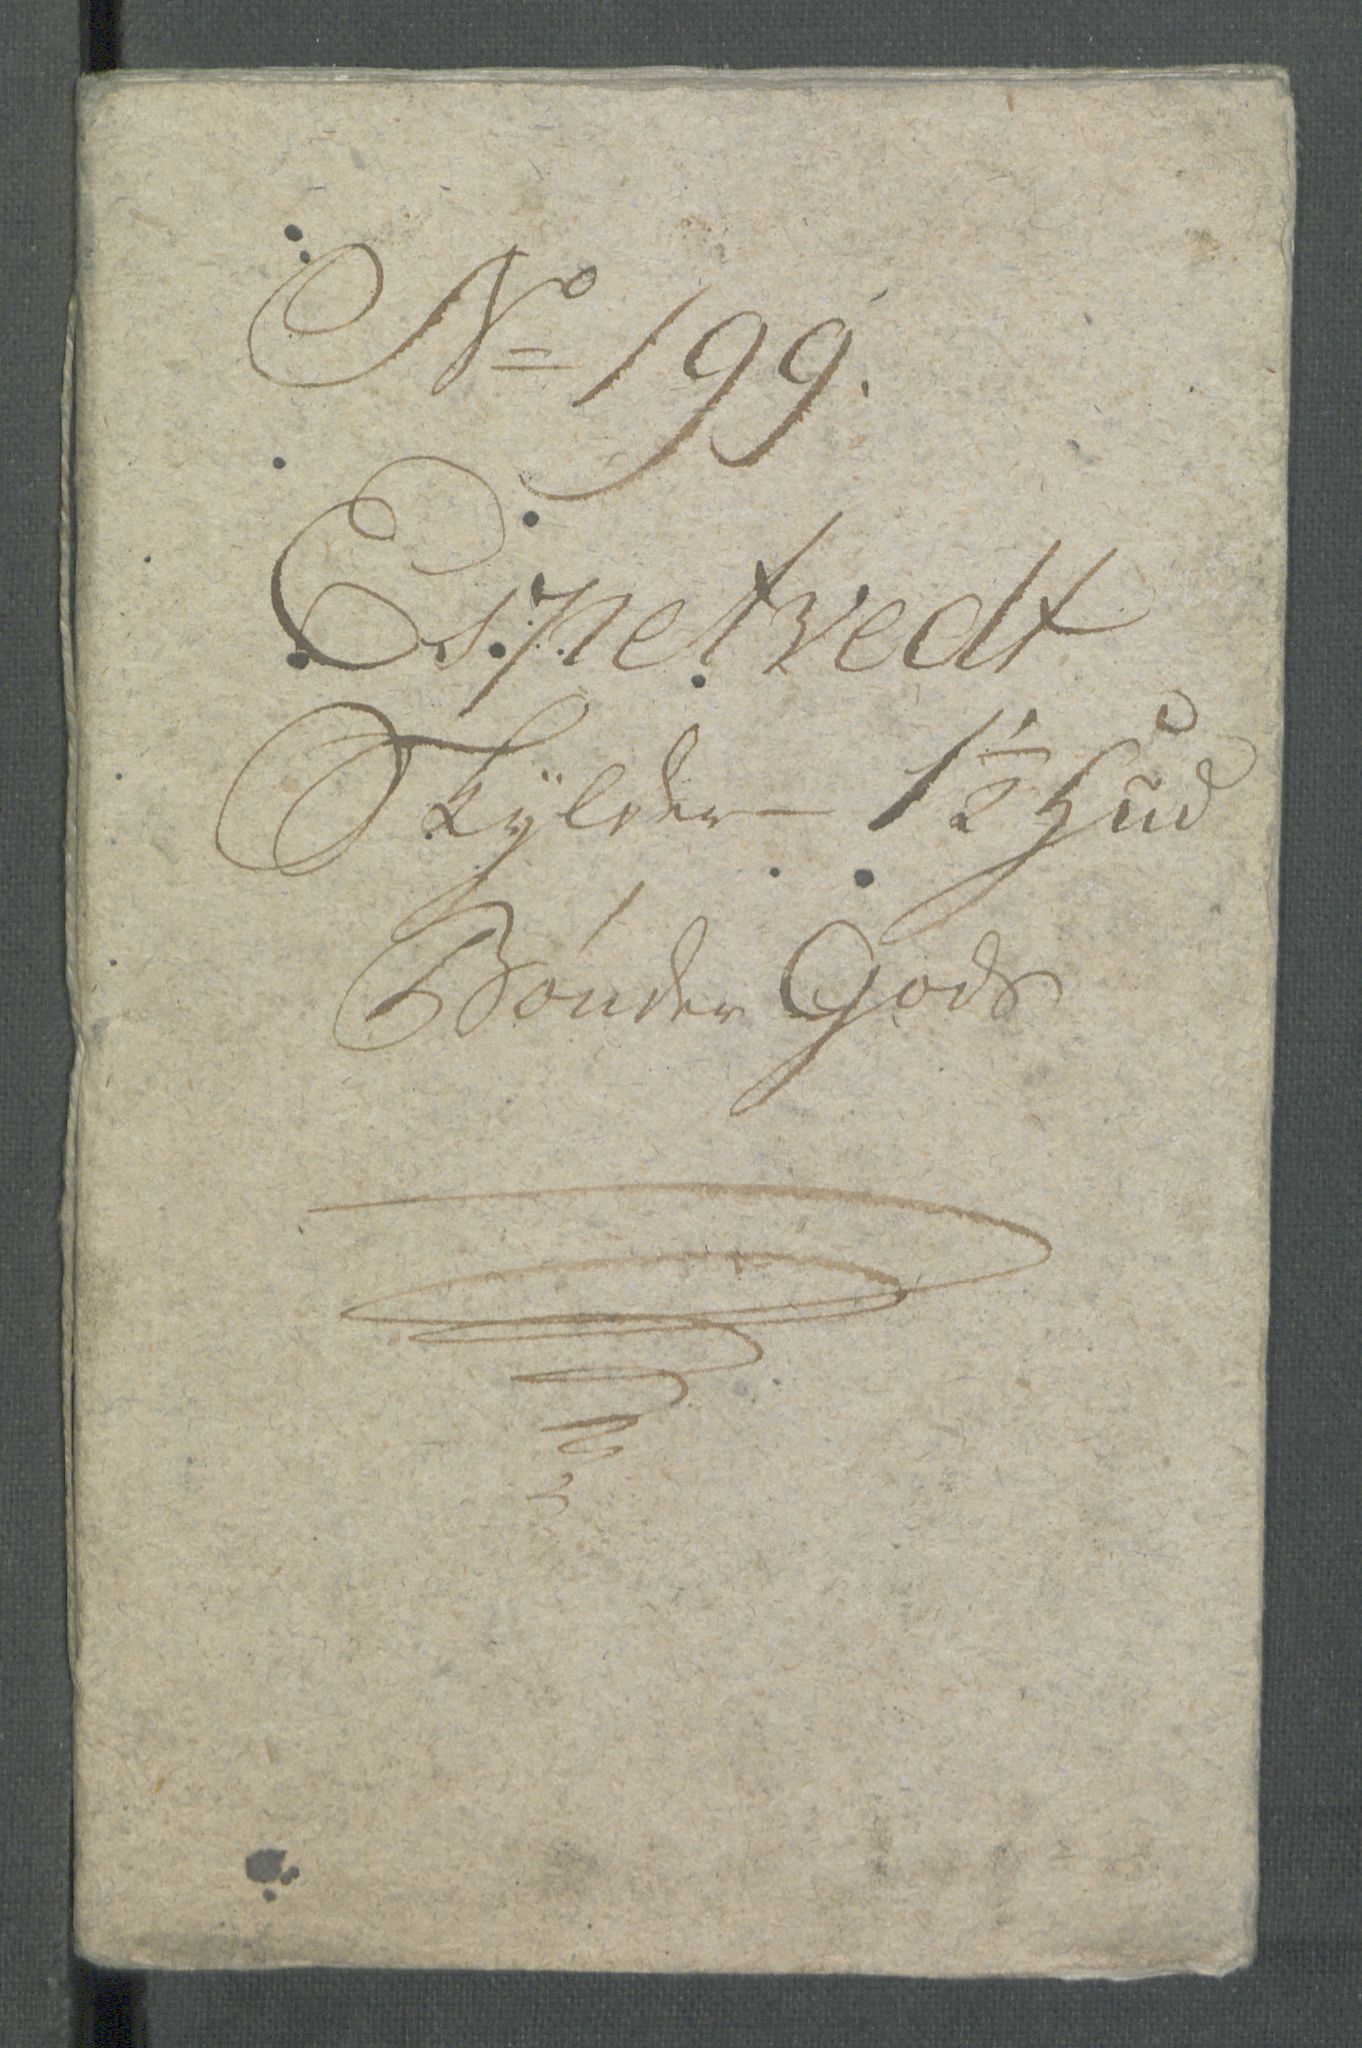 No 199.
Espetvedt
Skylder – 1½ Hud
Bönder Gods